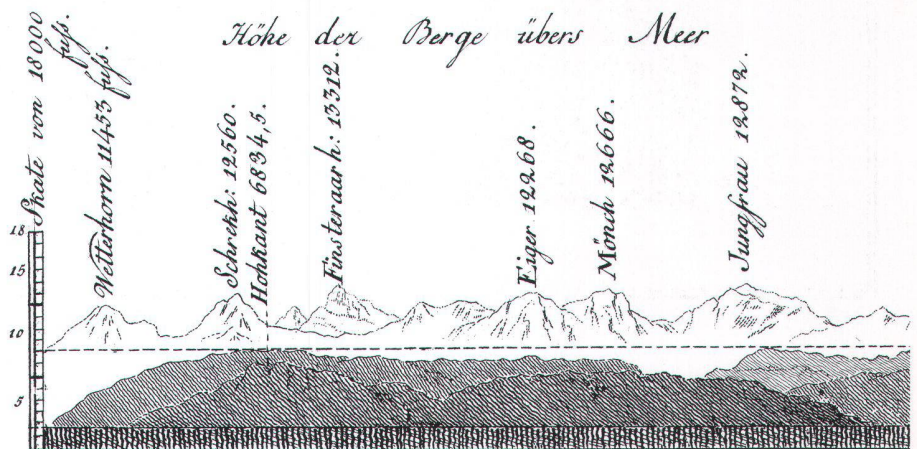 Höhe der Berge übers Meer
Skate von 18000 fuſs.
Wetterhorn 11453 fuſs.
Schrekh: 12560.
Hohkant 6834,5.
Finsteraarh: 13312.
Eiger 12268.
Mönch 12666.
Jungfrau 12872.
18
15
10
5